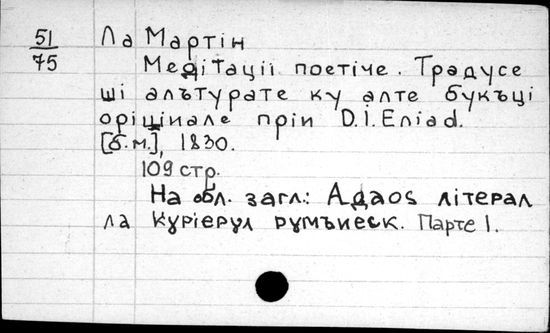 51
75
Ла Мартін
Медітації поетіче. Традусе
ші алътурате ку алте букъці
оріціінале прін D.I. Eliad.
[б.м.], 1830.
109 стр.
На обл. загл.: Адаоs літерал
ла Курієрул румънеск. Парте 1.